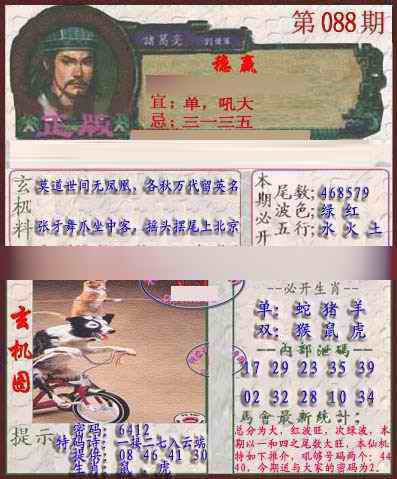 第088期
諸葛亮 刘伯温
稳赢
正版
宜：单，吼大
忌：三一三五
玄机料
莫道世间无凤凰，各秋万代留英名
张牙舞爪坐中客，摇头摆尾上北京
本期必开
尾数;468579
波色;绿 红
五行;水 火 土
玄机图
--必开生肖--
单: 蛇 猪 羊
双: 猴 鼠 虎
--内部泄码--
17 29 23 35 39
02 32 28 10 34
馬會最新统计:
总分为大，红波旺，次绿波，本
期以一和四之尾数大旺，本仙机
特如下推介，吼够号码两个: 44
40，今期送与大家的密码为2.
提示
密码: 6412
特码诗: 一接二七入云端
提供: 08 46 41 30
生肖: 鼠 . 虎